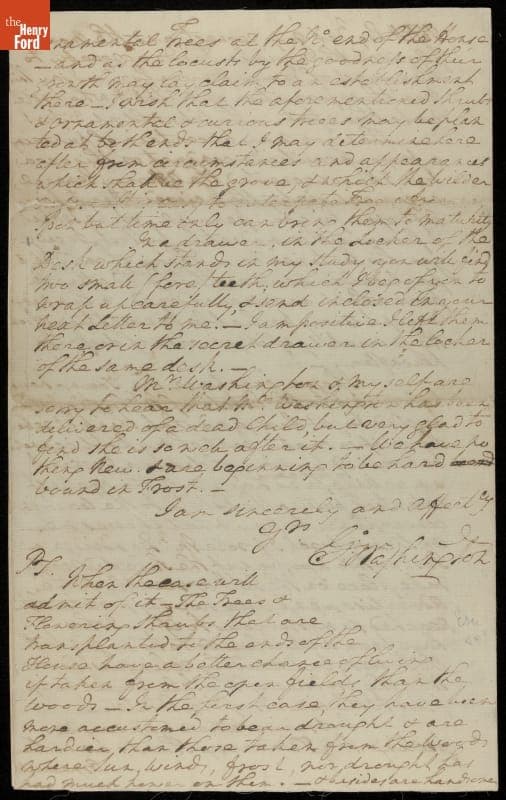 the
Henry
Ford
Ornamental Trees at the No. end of the House
— and as the locusts by the goodness of their
growth may lay claim to an establishment
there — I wish that the aforementioned Shrubs
& ornamental & curious trees may be plan
ted at both ends that I may determine here
after from circumstances and appearances
which shall be the grove, & which the wilder
ness. It is easy to extirpate Trees from any
spot but time only can bring them to maturity
In a drawer, in the Locker of the
Desk which stands in my Study you will find
two small (fore) teeth, which I beg of you to
wrap up carefully, & send inclosed in your
next Letter to me. — I am positive I left them
there or in the secret drawer in the locker
of the same desk. —
Mrs. Washington & myself are
sorry to hear that Mrs. Washington has been
delivered of a dead Child, but very glad to
find she is so well after it. — We have no
thing New. & are beginning to be hard
bound in Frost. —
I am sincerely and affectly
Yrs
Go: Washington
PS.
When the case will
admit of it — The Trees &
Flowering Shrubs that are
transplanted to the ends of the
House have a better chance of living
if taken from the open fields than the
woods — In the first case they have been
more accustomed to bear drought & are
hardier, than those taken from the Woods
where Sun, winds, frost, nor drought has
had much power on them. — & besides are handsome